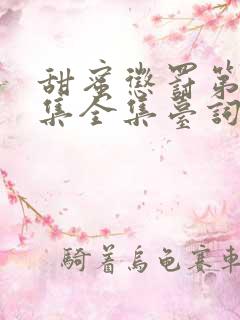 甜蜜懲罰第
集全集臺詞
騎着烏龜賽車